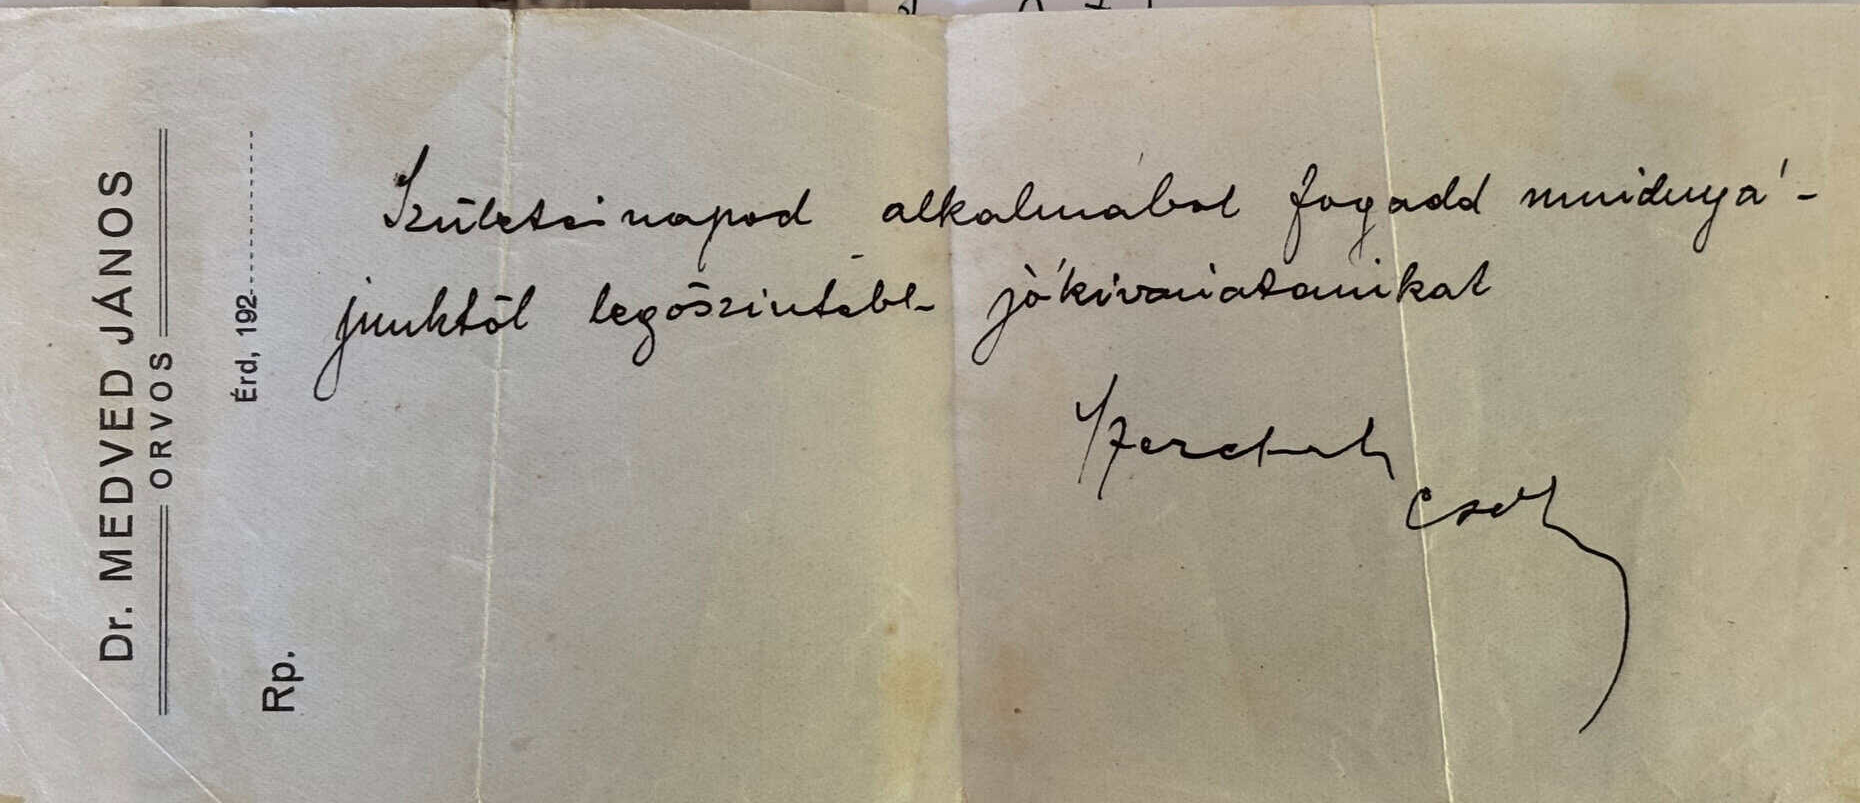 Dr. MEDVED JÁNOS
ORVOS
Érd, 192
Rp.
Születésinapod alkalmábol fogadd mindnyá-
junktól legőszintébb jókivánatainkat
Szeretnek